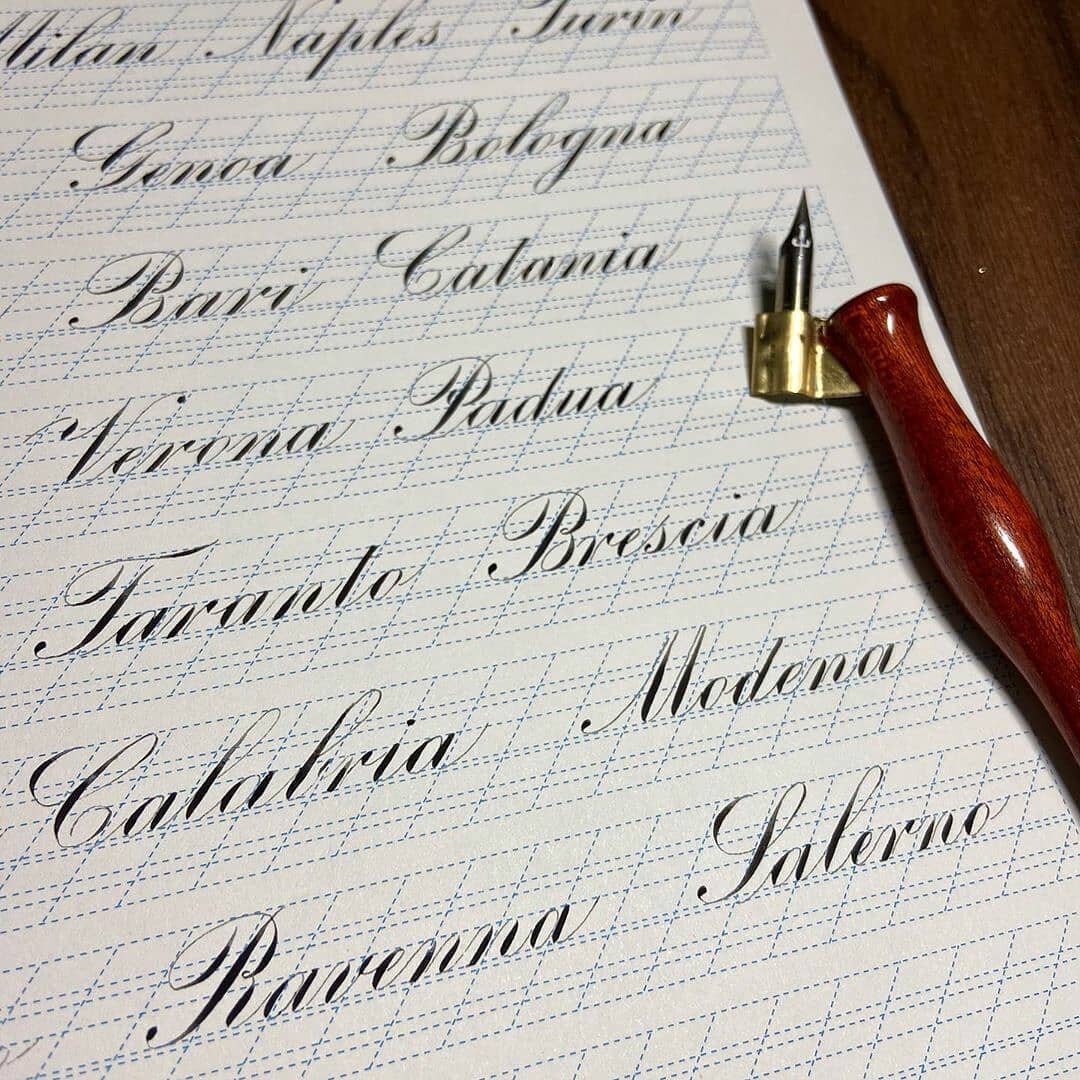 Milan Naples Turin
Genoa Bologna
Bari Catania
Verona Padua
Taranto Brescia
Calabria Modena
Ravenna Salerno